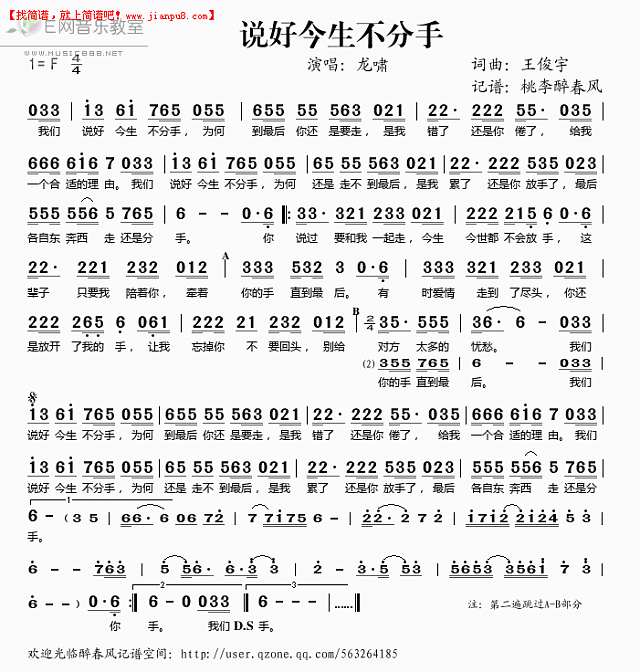 【找简谱，就上简谱吧www.jianpu8.com】
E网音乐教室
WWW.MUSIC888.NET
说好今生不分手
1=F 4/4
演唱：龙啸
词曲：王俊宇
记谱：桃李醉春风
033 | i3 6i 765 055 | 655 55 563 021 | 22· 222 55· 035 |
我们 说好 今生 不分手，为何 到最后 你还 是要走，是我 错了 还是你 倦了，给我
666 6i6 7 033 | i33 6i 765 055 | 65 55 563 021 | 22· 222 535 023 |
一个合 适的理 由。我们 说好 今生 不分手，为何 还是 走不 到最后，是我 累了 还是你 放手了，最后
555 556 5 765 | 6 - - 0·6 ‖: 33· 321 233 021 | 222 215 6 0·6 |
各自东 奔西 走 还是分 手。 你 说过 要和我 一起走，今生 今世都 不会放 手，这
A
22· 221 232 012 | 333 532 3 0·6 | 33 321 3 221 |
辈子 只要我 陪着你，牵着 你的手 直到最 后。有 时爱情 走到 了尽头，你还
B
222 265 6 061 | 212 2 223 012 | 2/4 35· 555 | 36· 6 - 033 |
是放开 了我的 手，让我 忘掉你 不 要回头，别给 对方 太多的 忧愁。 我们
(2) 355 765 | 6 - - 033 |
你的手 直到最 后。 我们
i3 6i 765 055 | 655 55 563 021 | 22· 222 55· 035 | 666 6i6 7 033 |
说好 今生 不分手，为何 到最后 你还 是要走，是我 错了 还是你 倦了，给我 一个合 适的理 由。我们
i3 6i 765 055 | 65 55 563 021 | 22· 222 535 023 | 555 556 5 765 |
说好 今生 不分手，为何 还是 走不 到最后，是我 累了 还是你 放手了，最后 各自东 奔西 走 还是分
1
6 - (35 | 66·6 06 72 | 7 7i75 6 - | 22·2 7 2 | i7i2 2i24 5 3 |
手。
6 - - 763 | 5 56· 6·3 3 | 2 - 3·5 3 | 5653 35657 3 |
2 3
6 - -) 0·6 :‖ 6 - 0 033 | 6 - - - |……‖
你 手。 我们D.S 手。
注：第二遍跳过A-B部分
欢迎光临醉春风记谱空间：http://user.qzone.qq.com/563264185